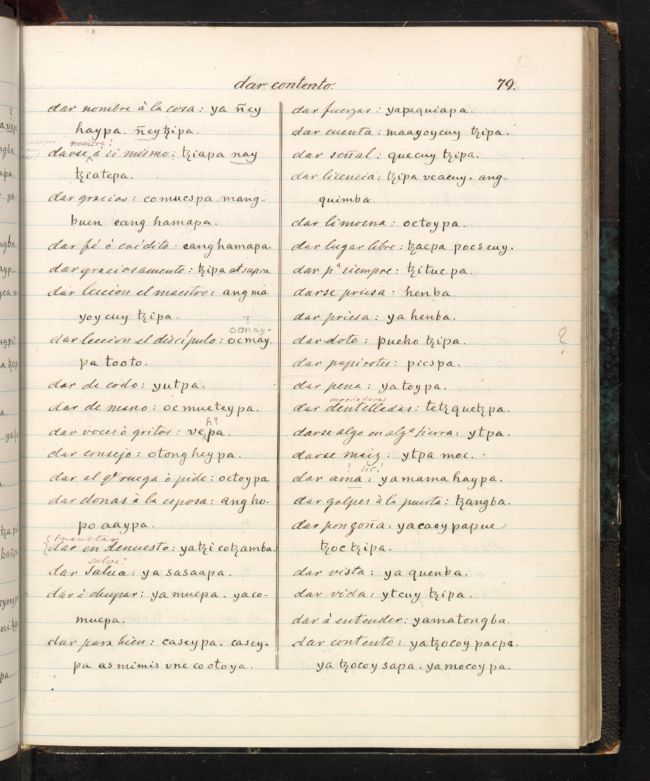 dar contento. 79.
dar nombre à la cosa: ya ñey
haypa. ñeytzipa.
nombre?
darse à si mismo: tziapa nay
tziatepa.
dar gracias: comucspa mang-
buen cang hamapa.
dar fé ò crédito: canghamapa.
dar graciosamente: tzipa ut supra
dar leccion el maestro: angma
yoycuy tzipa.
?
ocmay-
dar leccion el discípulo: ocmay
pa tooto.
dar de codo: yutpa.
dar de mano: ocmueteypa.
h?
dar voces ò gritos: vepa.
dar consejo: otongheypa.
dar al qe ruega ò pide: octoypa
dar donas à la esposa: angho-
po aaypa.
dar en denuesto: yatzi cotzamba.
salva?
dar salua: ya sasaapa.
dar à chupar: ya muepa. yaco-
muepa.
dar para bien: caseypa. casey-
pa as mimis vne cootoya.
dar fuerzas: yapaquiapa.
dar cuenta: maayoycuy tzipa.
dar señal: quecuy tzipa.
dar licencia: tzipa veacuy. ang-
quimba.
dar limosna: octoypa.
dar lugar libre: tzacpa pocscuy.
dar pa siempre: tzitucpa.
darse priesa: henba.
dar priesa: ya henba.
dar dote: pueho tzipa. ?
dar papirotes: picspa.
dar pena: yatoypa.
dar dentelladas: tetzquetzpa.
darse algo en alga tierra: ytpa.
darse maiz: ytpa moc.
? sic!
dar ama: yamamahaypa.
dar golpes à la puerta: tzangba.
dar ponzoña: yacaoy papue
tzoctzipa.
dar vista: ya quenba.
dar vida: ytcuy tzipa.
dar à entender: yamatongba.
dar contento: yatzocoy pacpa.
ya tzocoy sapa. yamocoypa.